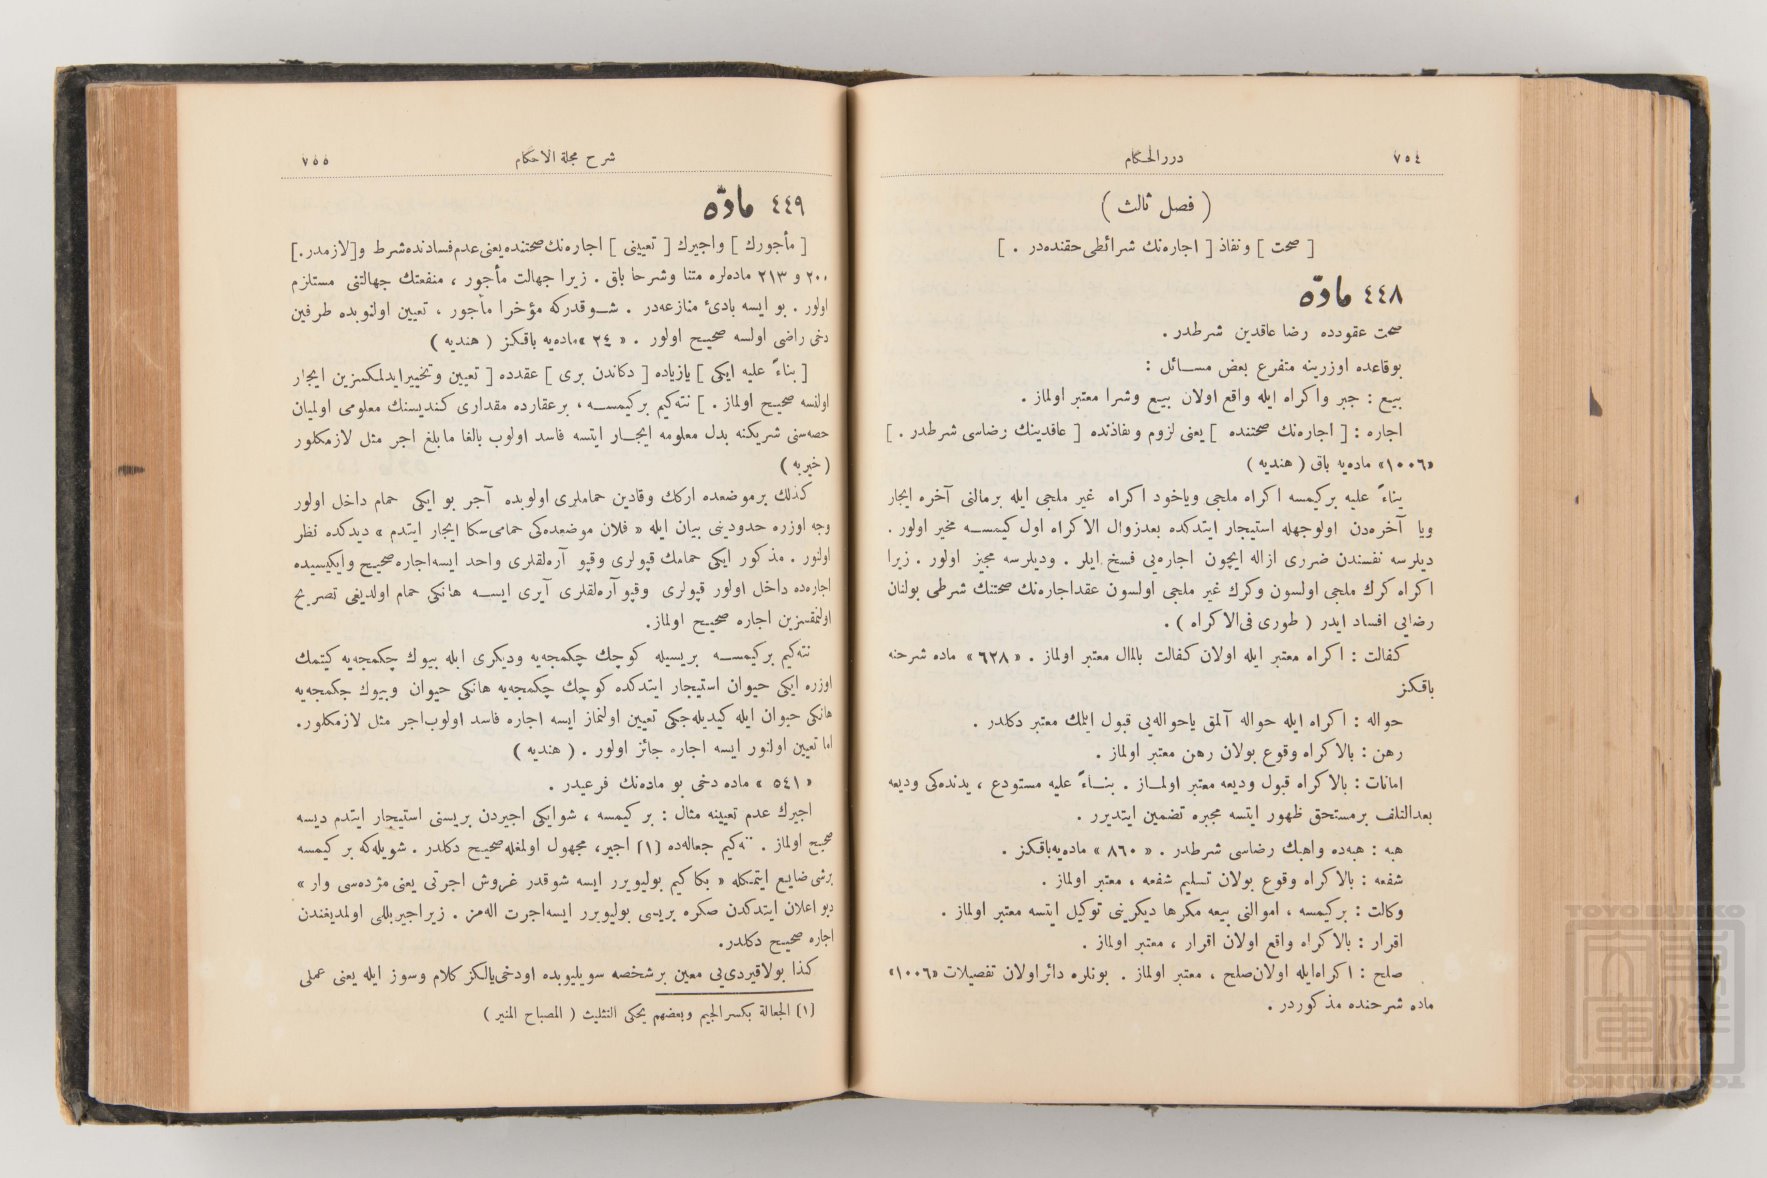 ٧٥٤
درر الحكام
( فصل ثالث )
[ صحت ] ونفاذ [ اجاره‌نك شرائطى حقنده‌در . ]
٤٤٨ مادّه
صحت عقودده رضا عاقدين شرطدر .
بوقاعده اوزرينه متفرع بعض مسائل :
بيع : جبر واكراه ايله واقع اولان بيع وشرا معتبر اولماز .
اجاره : [ اجاره‌نك صحتنده ] يعنى لزوم ونفاذنده [ عاقدينك رضاسى شرطدر . ]
«١٠٠٦» ماده‌يه باق ( هنديه )
بناءً عليه بركيمسه اكراه ملجى وياخود اكراه غير ملجى ايله برمالنى آخره ايجار
ويا آخره‌دن اولوجهله استيجار ايتدكده بعدزوال الاكراه اول كيمسه مخير اولور .
ديلرسه نفسندن ضررى ازاله ايچون اجاره‌يى فسخ ايلر . وديلرسه مجيز اولور . زيرا
اكراه كرك ملجى اولسون وكرك غير ملجى اولسون عقداجاره‌نك صحتنك شرطى بولنان
رضايى افساد ايدر ( طورى فى الاكراه ) .
كفالت : اكراه معتبر ايله اولان كفالت بالمال معتبر اولماز . «٦٢٨» ماده شرحنه
باقكز
حواله : اكراه ايله حواله آلمق ياحواله‌يى قبول ايتمك معتبر دكلدر .
رهن : بالاكراه وقوع بولان رهن معتبر اولماز .
امانات : بالاكراه قبول وديعه معتبر اولماز . بناءً عليه مستودع ، يدنده‌كى وديعه
بعدالتلف برمستحق ظهور ايتسه مجبره تضمين ايتديرر .
هبه : هبه‌ده واهبك رضاسى شرطدر . «٨٦٠» ماده‌يه‌باقكز .
شفعه : بالاكراه وقوع بولان تسليم شفعه ، معتبر اولماز .
وكالت : بركيمسه ، اموالنى بيعه مكرها ديكرينى توكيل ايتسه معتبر اولماز .
اقرار : بالاكراه واقع اولان اقرار ، معتبر اولماز .
صلح : اكراه‌ايله اولان‌صلح ، معتبر اولماز . بونلره دائراولان تفصيلات «١٠٠٦»
ماده شرحنده مذكوردر .
شرح مجلة الاحكام
٧٥٥
٤٤٩ مادّه
[ مأجورك ] واجيرك [ تعيينى ] اجاره‌نك‌صحتنده‌يعنى‌عدم‌فسادنده‌شرط و[لازمدر.]
٢٠٠ و ٢١٣ ماده‌لره متنا وشرحا باق . زيرا جهالت مأجور ، منفعتك جهالتنى مستلزم
اولور . بو ايسه بادئ منازعه‌در . شوقدركه مؤخرا مأجور ، تعيين اولنوبده طرفين
دخى راضى اولسه صحيح اولور . «٢٤» ماده‌يه باقكز ( هنديه )
[ بناءً عليه ايكى ] يازياده [ دكاندن برى ] عقدده [ تعيين وتخييرايدلمكسزين ايجار
اولنسه صحيح اولماز . ] نته‌كيم بركيمسه ، برعقارده مقدارى كنديسنك معلومى اولميان
حصه‌سنى شريكنه بدل معلومه ايجار ايتسه فاسد اولوب بالغا مابلغ اجر مثل لازمكلور
( خيريه )
كذلك برموضعده اركك وقادين حماملرى اولوبده آجر بو ايكى حمام داخل اولور
وجه اوزره حدودينى بيان ايله « فلان موضعده‌كى حمامى‌سكا ايجار ايتدم » ديدكده نظر
اولنور . مذكور ايكى حمامك قپولرى وقپو آره‌لقلرى واحد ايسه‌اجاره‌صحيح وايكيسيده
اجاره‌ده داخل اولور قپولرى وقپو آره‌لقلرى آيرى ايسه هانكى حمام اولديغى تصريح
اولنمقسزين اجاره صحيح اولماز.
نته‌كيم بركيمسه بريسيله كوچك چكمجه‌يه وديكرى ايله بيوك چكمجه‌يه كيتمك
اوزره ايكى حيوان استيجار ايتدكده كوچك چكمجه‌يه هانكى حيوان وبيوك چكمجه‌يه
هانكى حيوان ايله كيديله‌جكى تعيين اولنماز ايسه اجاره فاسد اولوب‌اجر مثل لازمكلور.
اما تعيين اولنور ايسه اجاره جائز اولور . ( هنديه )
«٥٤١» ماده دخى بو ماده‌نك فرعيدر .
اجيرك عدم تعيينه مثال : بركيمسه ، شوايكى اجيردن بريسنى استيجار ايتدم ديسه
صحيح اولماز . نته‌كيم جعاله‌ده [١] اجير، مجهول اولمغله‌صحيح دكلدر . شويله‌كه بركيمسه
برشى ضايع ايتمكله « بكا كيم بوليويرر ايسه شوقدر غروش اجرتى يعنى مژده‌سى وار »
ديو اعلان ايتدكدن صكره بريسى بوليويرر ايسه‌اجرت آله‌مز . زيرااجيربللى اولمديغندن
اجاره صحيح دكلدر.
كذا بولاقيردى‌يى معين برشخصه سويليوبده اودخى‌يالكز كلام وسوز ايله يعنى عملى
[١] الجعالة بكسرالجيم وبعضهم يحكى التثليث ( المصباح المنير )
TOYO BUNKO